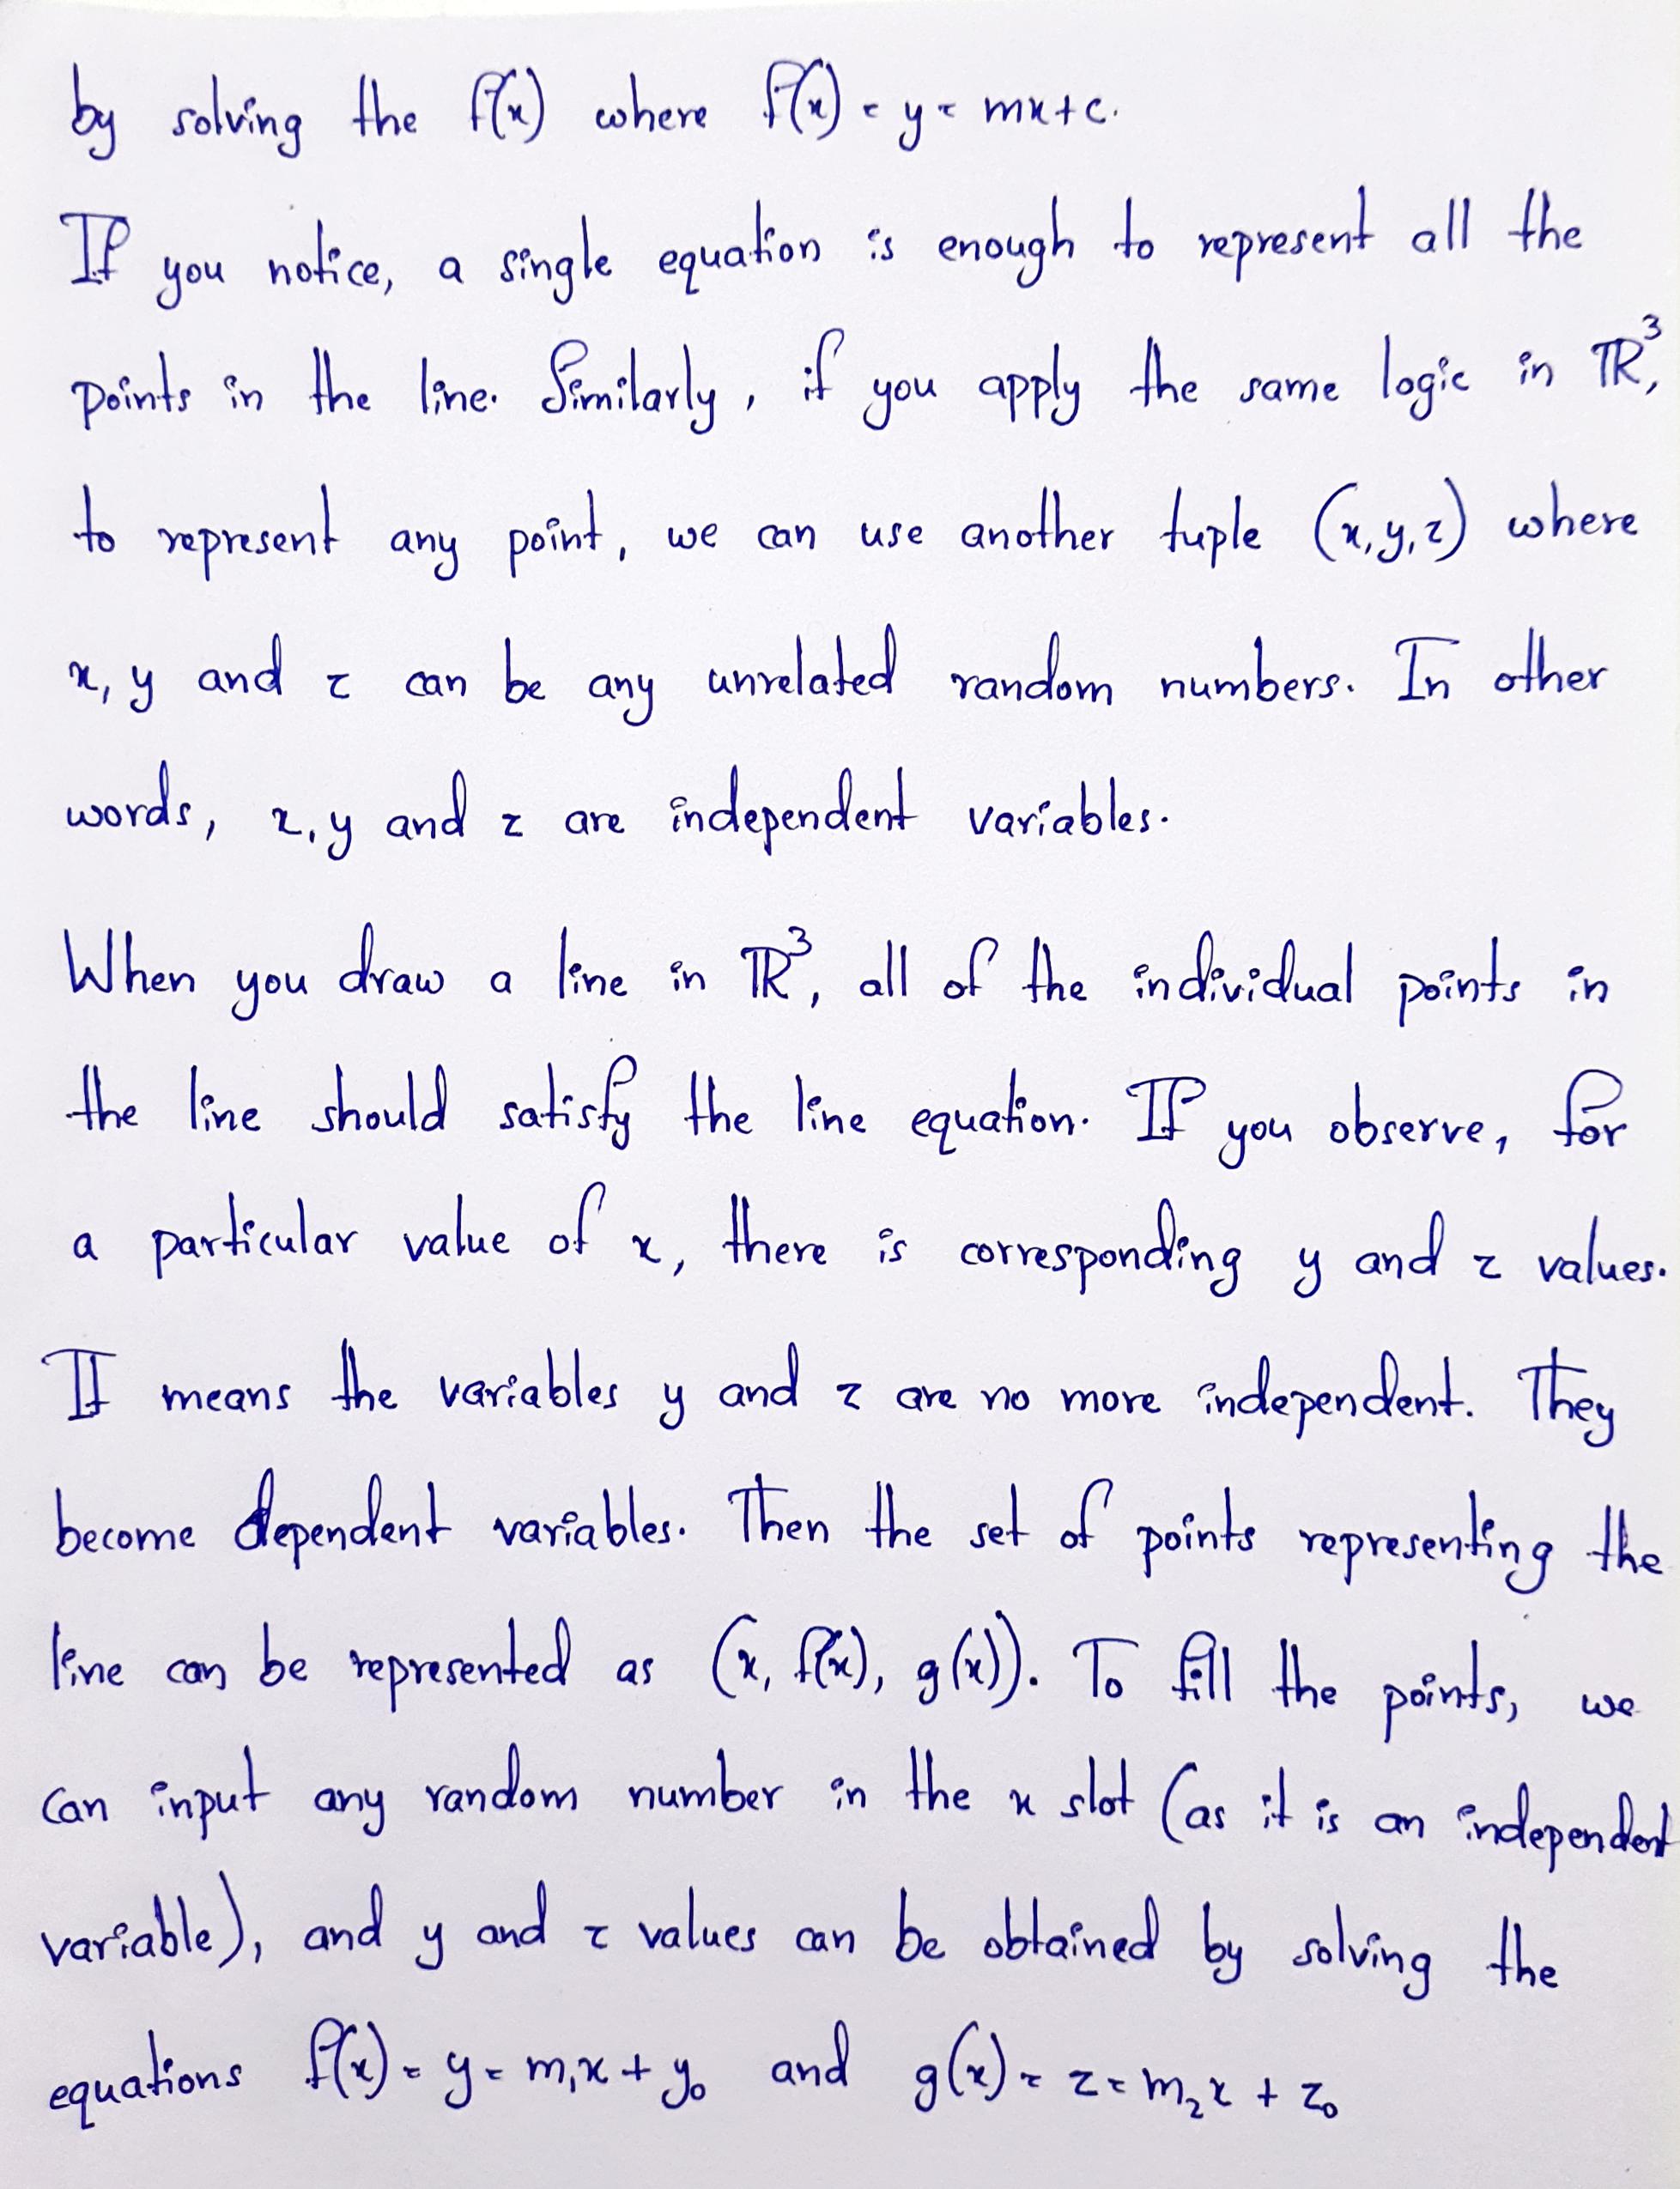 by solving the f(x) where f(x) = y = mx+c.
If you notice, a single equation is enough to represent all the
points in the line. Similarly, if you apply the same logic in ℝ³,
to represent any point, we can use another tuple (x,y,z) where
x, y and z can be any unrelated random numbers. In other
words, x,y and z are independent variables.
When you draw a line in ℝ³, all of the individual points in
the line should satisfy the line equation. If you observe, for
a particular value of x, there is corresponding y and z values.
It means the variables y and z are no more independent. They
become dependent variables. Then the set of points representing the
line can be represented as (x, f(x), g(x)). To fill the points, we
can input any random number in the x slot (as it is an independent
variable), and y and z values can be obtained by solving the
equations f(x) = y = m₁x + y₀ and g(x) = z = m₂x + z₀